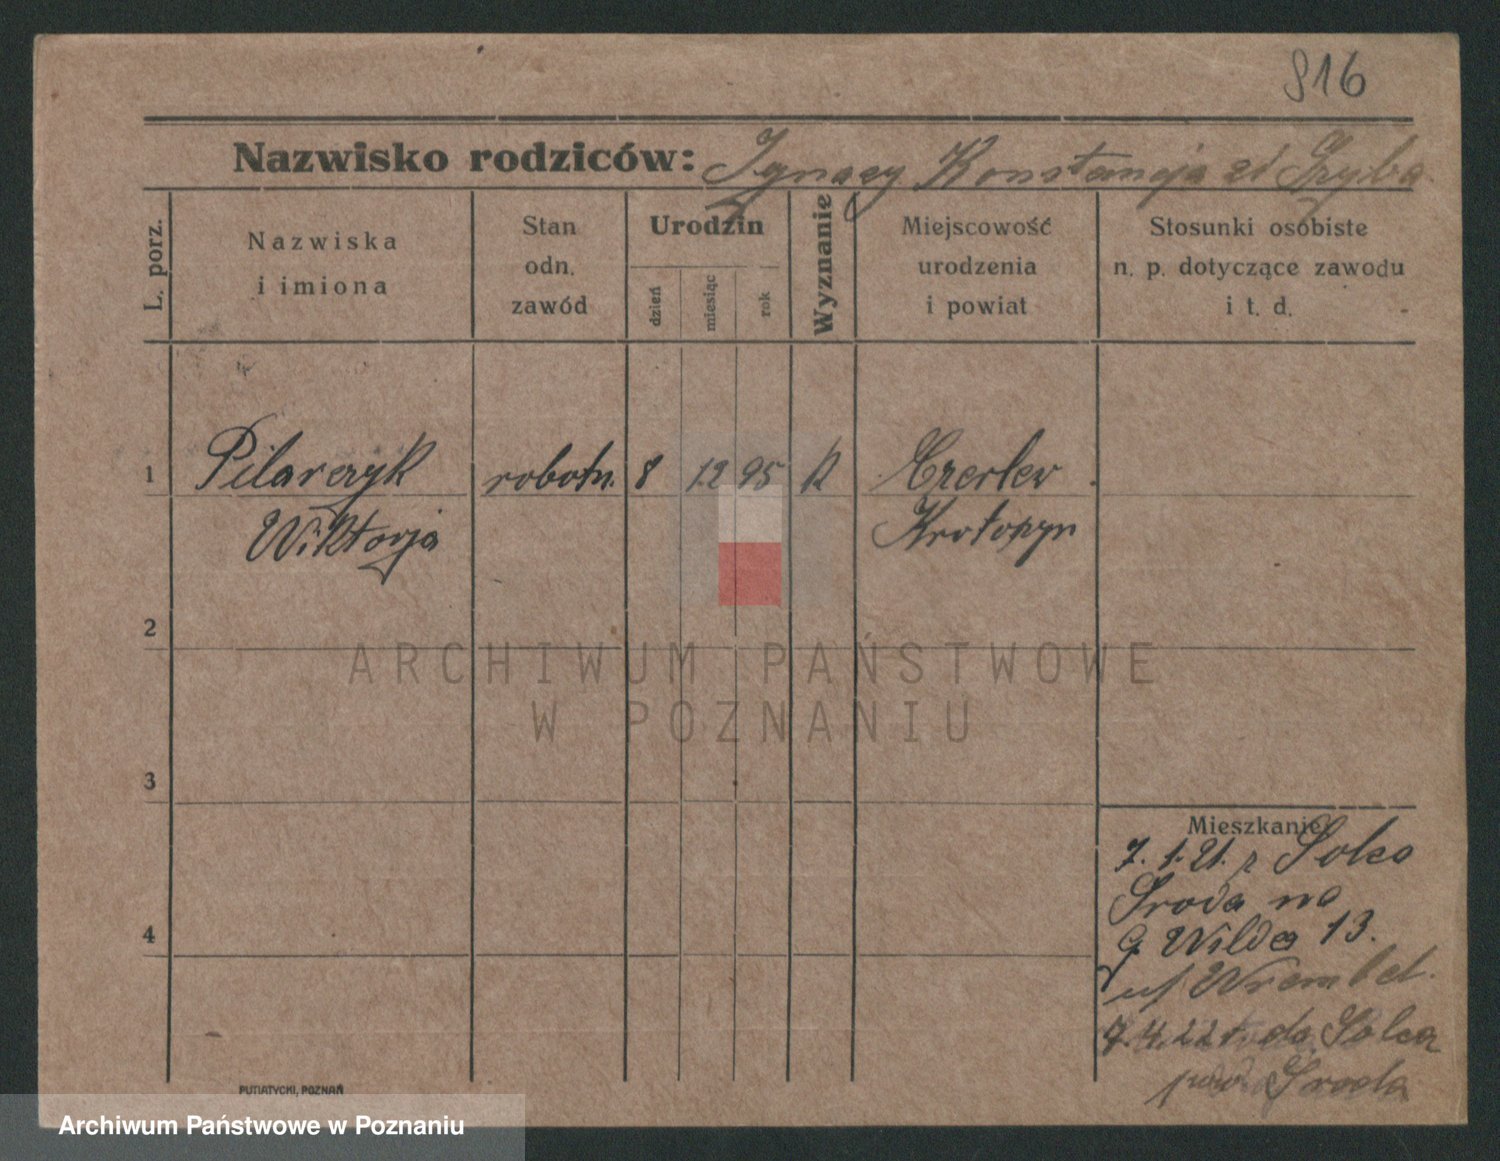 916
Nazwisko rodziców: Ignacy Konstancja zd Szyba
L. porz.
Nazwiska i imiona
Stan odn. zawód
Urodzin
dzień
miesiąc
rok
Wyznanie
Miejscowość urodzenia i powiat
Stosunki osobiste n. p. dotyczące zawodu i t. d.
1 Pilarczyk robotn. 8 12 95 k
Wiktorja Krotoszyn
2
ARCHIWUM PAŃSTWOWE
W POZNANIU
3
Mieszkanie:
7. 1. 21. z Solca
Środa na
G Wilda 13.
7.4.22 do Solca
pow Środa
4
PUTIATYCKI, POZNAŃ
Archiwum Państwowe w Poznaniu